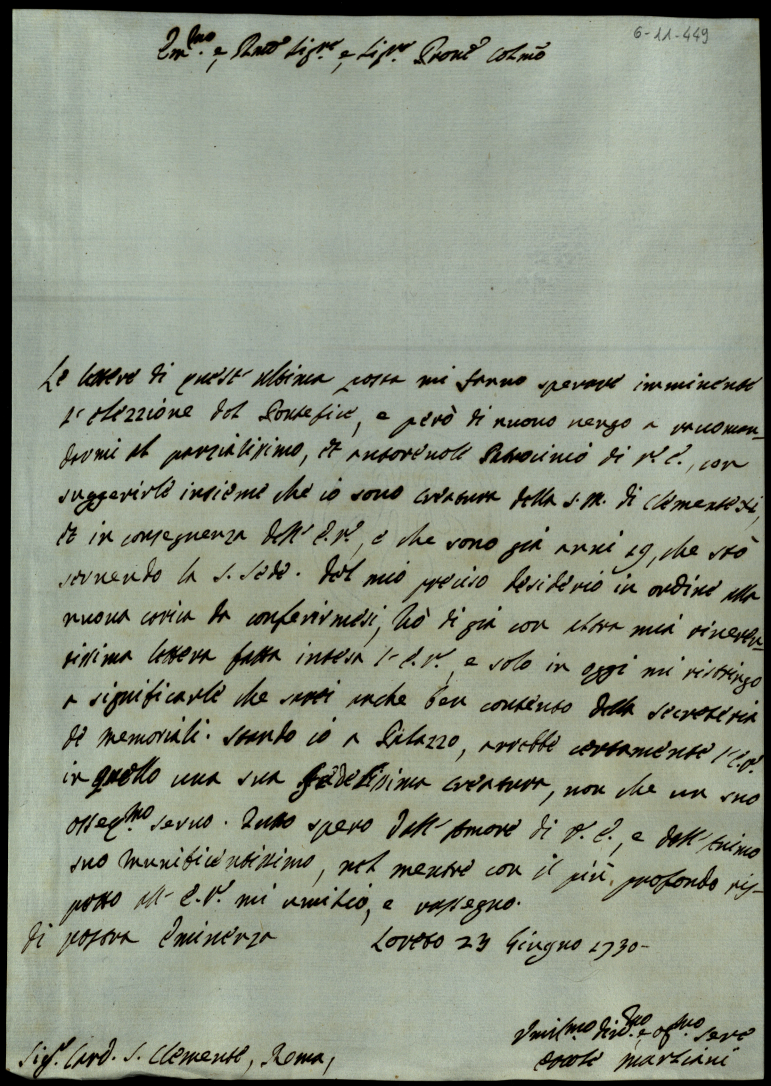 6-11-449
Em.mo e, Rmo Sigre e, Sigr. Prone Colmo
Le lettere di quest'ultima posta mi fanno sperare imminente
l'elezzione del Pontefice, e però di nuovo vengo a raccoman-
darmi al parzialissimo, et autorevole Patrocinio di V.E., con
suggerirle insieme che io sono creatura della S.M. di Clemente XI,
et in conseguenza dell'E.V., e che sono già anni 19, che stò
servendo la S. Sede. Del mio preciso desiderio in ordine alla
nuova carica da conferirmesi, hò di già con altra mia riveren-
tissima lettera fatta intesa l'E.V., e solo in oggi mi ristringo
a significarle che sarei anche ben contento della secreteria
de memoriali. Stando io a Palazzo, avrebbe certamente l'E.V.
in quello una sua fedelissima creatura, non che un suo
osseqmo servo. Tutto spero dall'Amore di V.E., e dall'Animo
suo munificentissimo, nel mentre con il più profondo ris-
petto all'E.V. mi umilio, e rassegno.
di Vostra Eminenza Loreto 23 Giugno 1730-
Umilmo divmo, e osmo Serve
Ercole Marliani
Sigr. Card. S. Clemente, Roma,